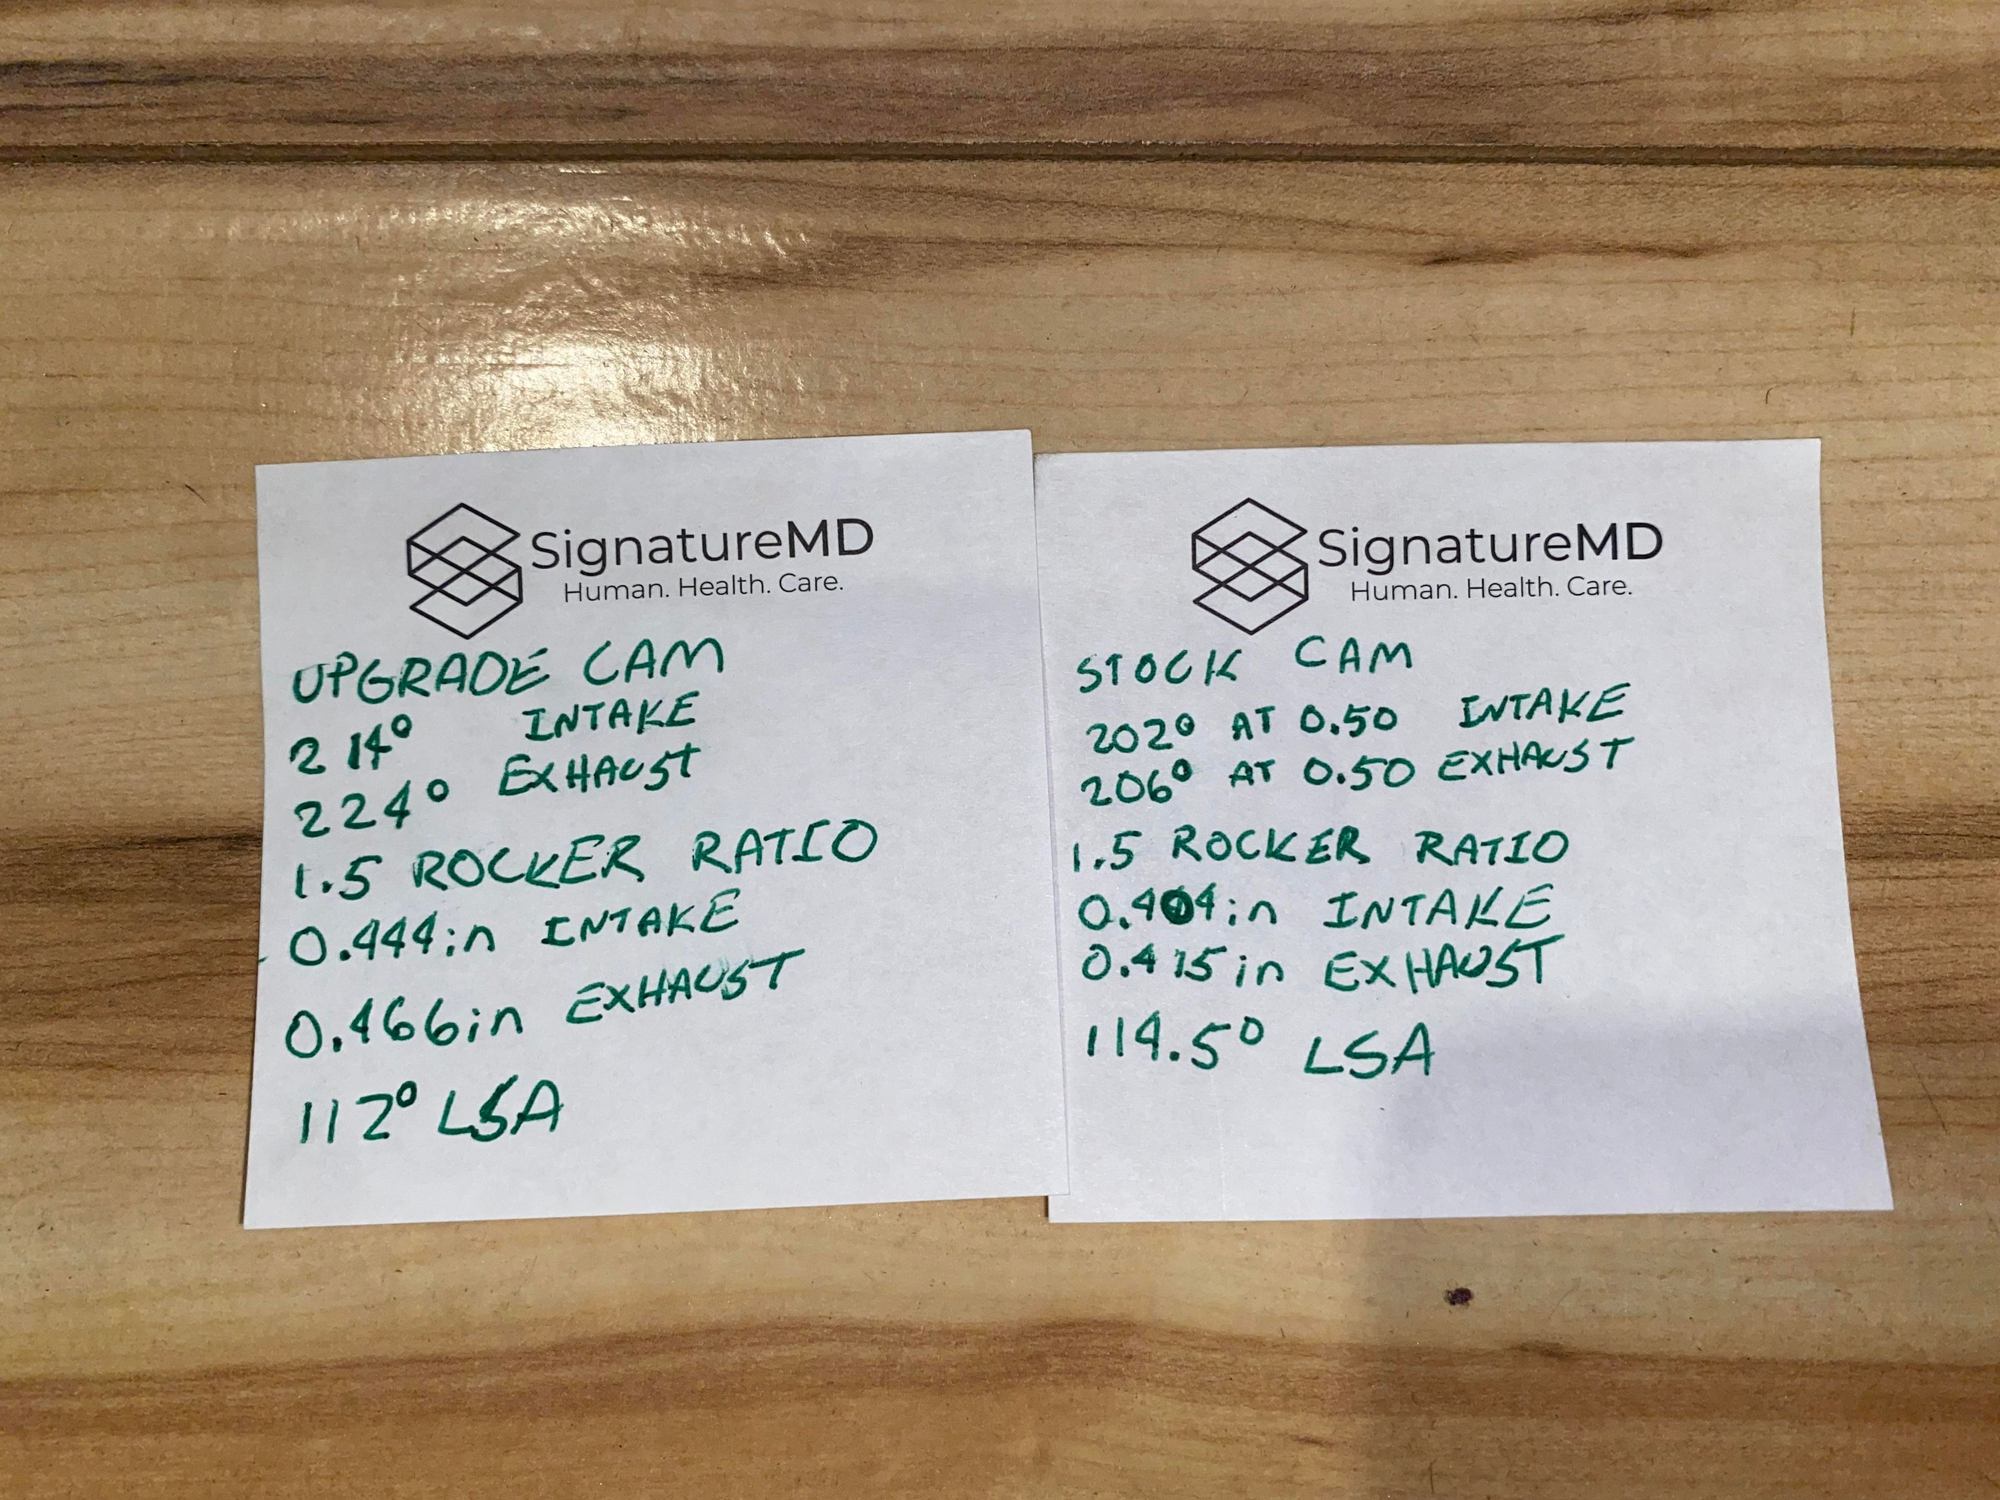 SignatureMD
Human. Health. Care.
UPGRADE CAM
214° INTAKE
224° EXHAUST
1.5 ROCKER RATIO
0.444in INTAKE
0.466in EXHAUST
112° LSA
SignatureMD
Human. Health. Care.
STOCK CAM
202° AT 0.50 INTAKE
206° AT 0.50 EXHAUST
1.5 ROCKER RATIO
0.404in INTAKE
0.415in EXHAUST
114.5° LSA